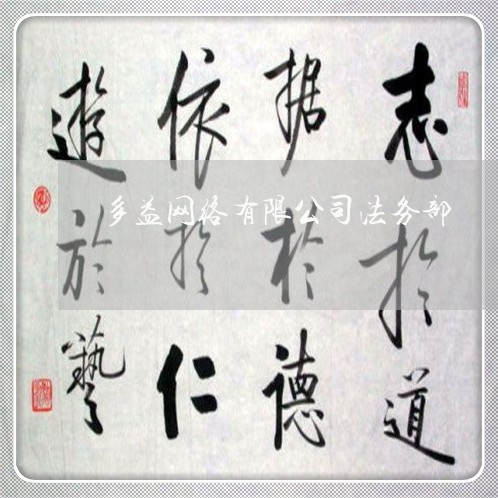 志於道
据於德
依於仁
遊於藝
多益网络有限公司法务部